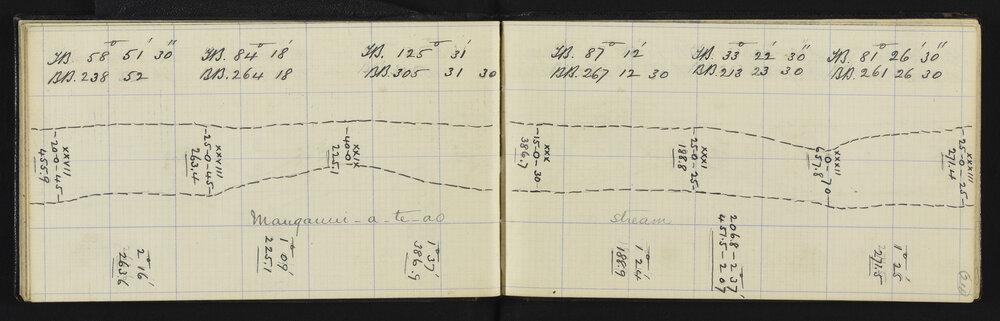 FB. 58° 51' 30"
BB. 238 52
FB. 84° 18'
BB. 264 18
FB. 125° 31'
BB. 305 31 30
FB. 87° 12'
BB. 267 12 30
FB. 33° 22' 30"
BB. 213 23 30
FB. 81° 26' 30"
BB. 261 26 30
XXVII
-20-0-45-
455.9
XXVIII
-25-0-45-
263.4
XXIX
-40-0-
225.1
XXX
-15-0-30-
386.7
XXXI
-25-0-25-
188.8
XXXII
10-70
657.8
XXXIII
-25-0-25-
271.4
Manganui-a-te-ao
stream
2° 16'
263.6
1° 09'
225.1
1° 37'
386.9
1° 24'
188.9
206.8 - 2° 37'
451.5 - 2. 09
1° 25'
271.5